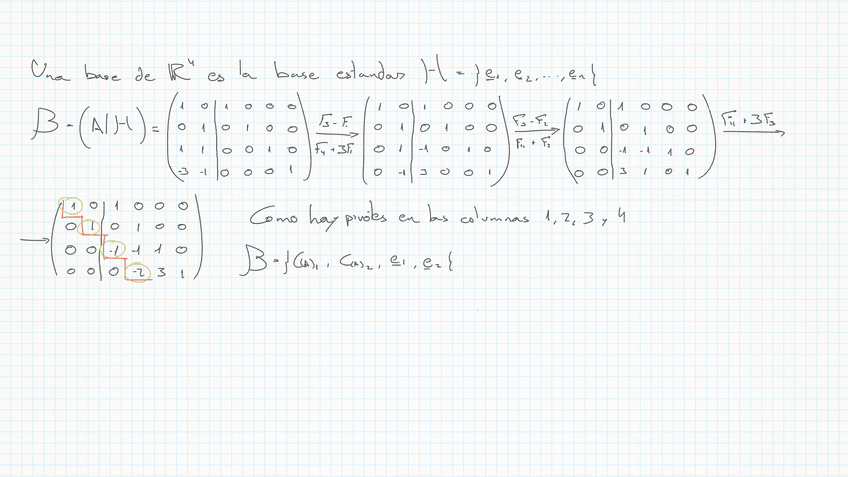 Una base de ℝ⁴ es la base estandar H = {e₁, e₂, ..., eₙ}
B = (A|H) = (1 0 | 1 0 0 0; 0 1 | 0 1 0 0; 1 1 | 0 0 1 0; -3 -1 | 0 0 0 1) F₃-F₁ F₄+3F₁ → (1 0 | 1 0 0 0; 0 1 | 0 1 0 0; 0 1 | -1 0 1 0; 0 -1 | 3 0 0 1) F₃-F₂ F₄+F₂ → (1 0 | 1 0 0 0; 0 1 | 0 1 0 0; 0 0 | -1 -1 1 0; 0 0 | 3 1 0 1) F₄+3F₃ →
→ (1 0 | 1 0 0 0; 0 1 | 0 1 0 0; 0 0 | -1 -1 1 0; 0 0 | 0 -2 3 1) Como hay pivotes en las columnas 1, 2, 3 y 4
B = {C(A)₁, C(A)₂, e₁, e₂}